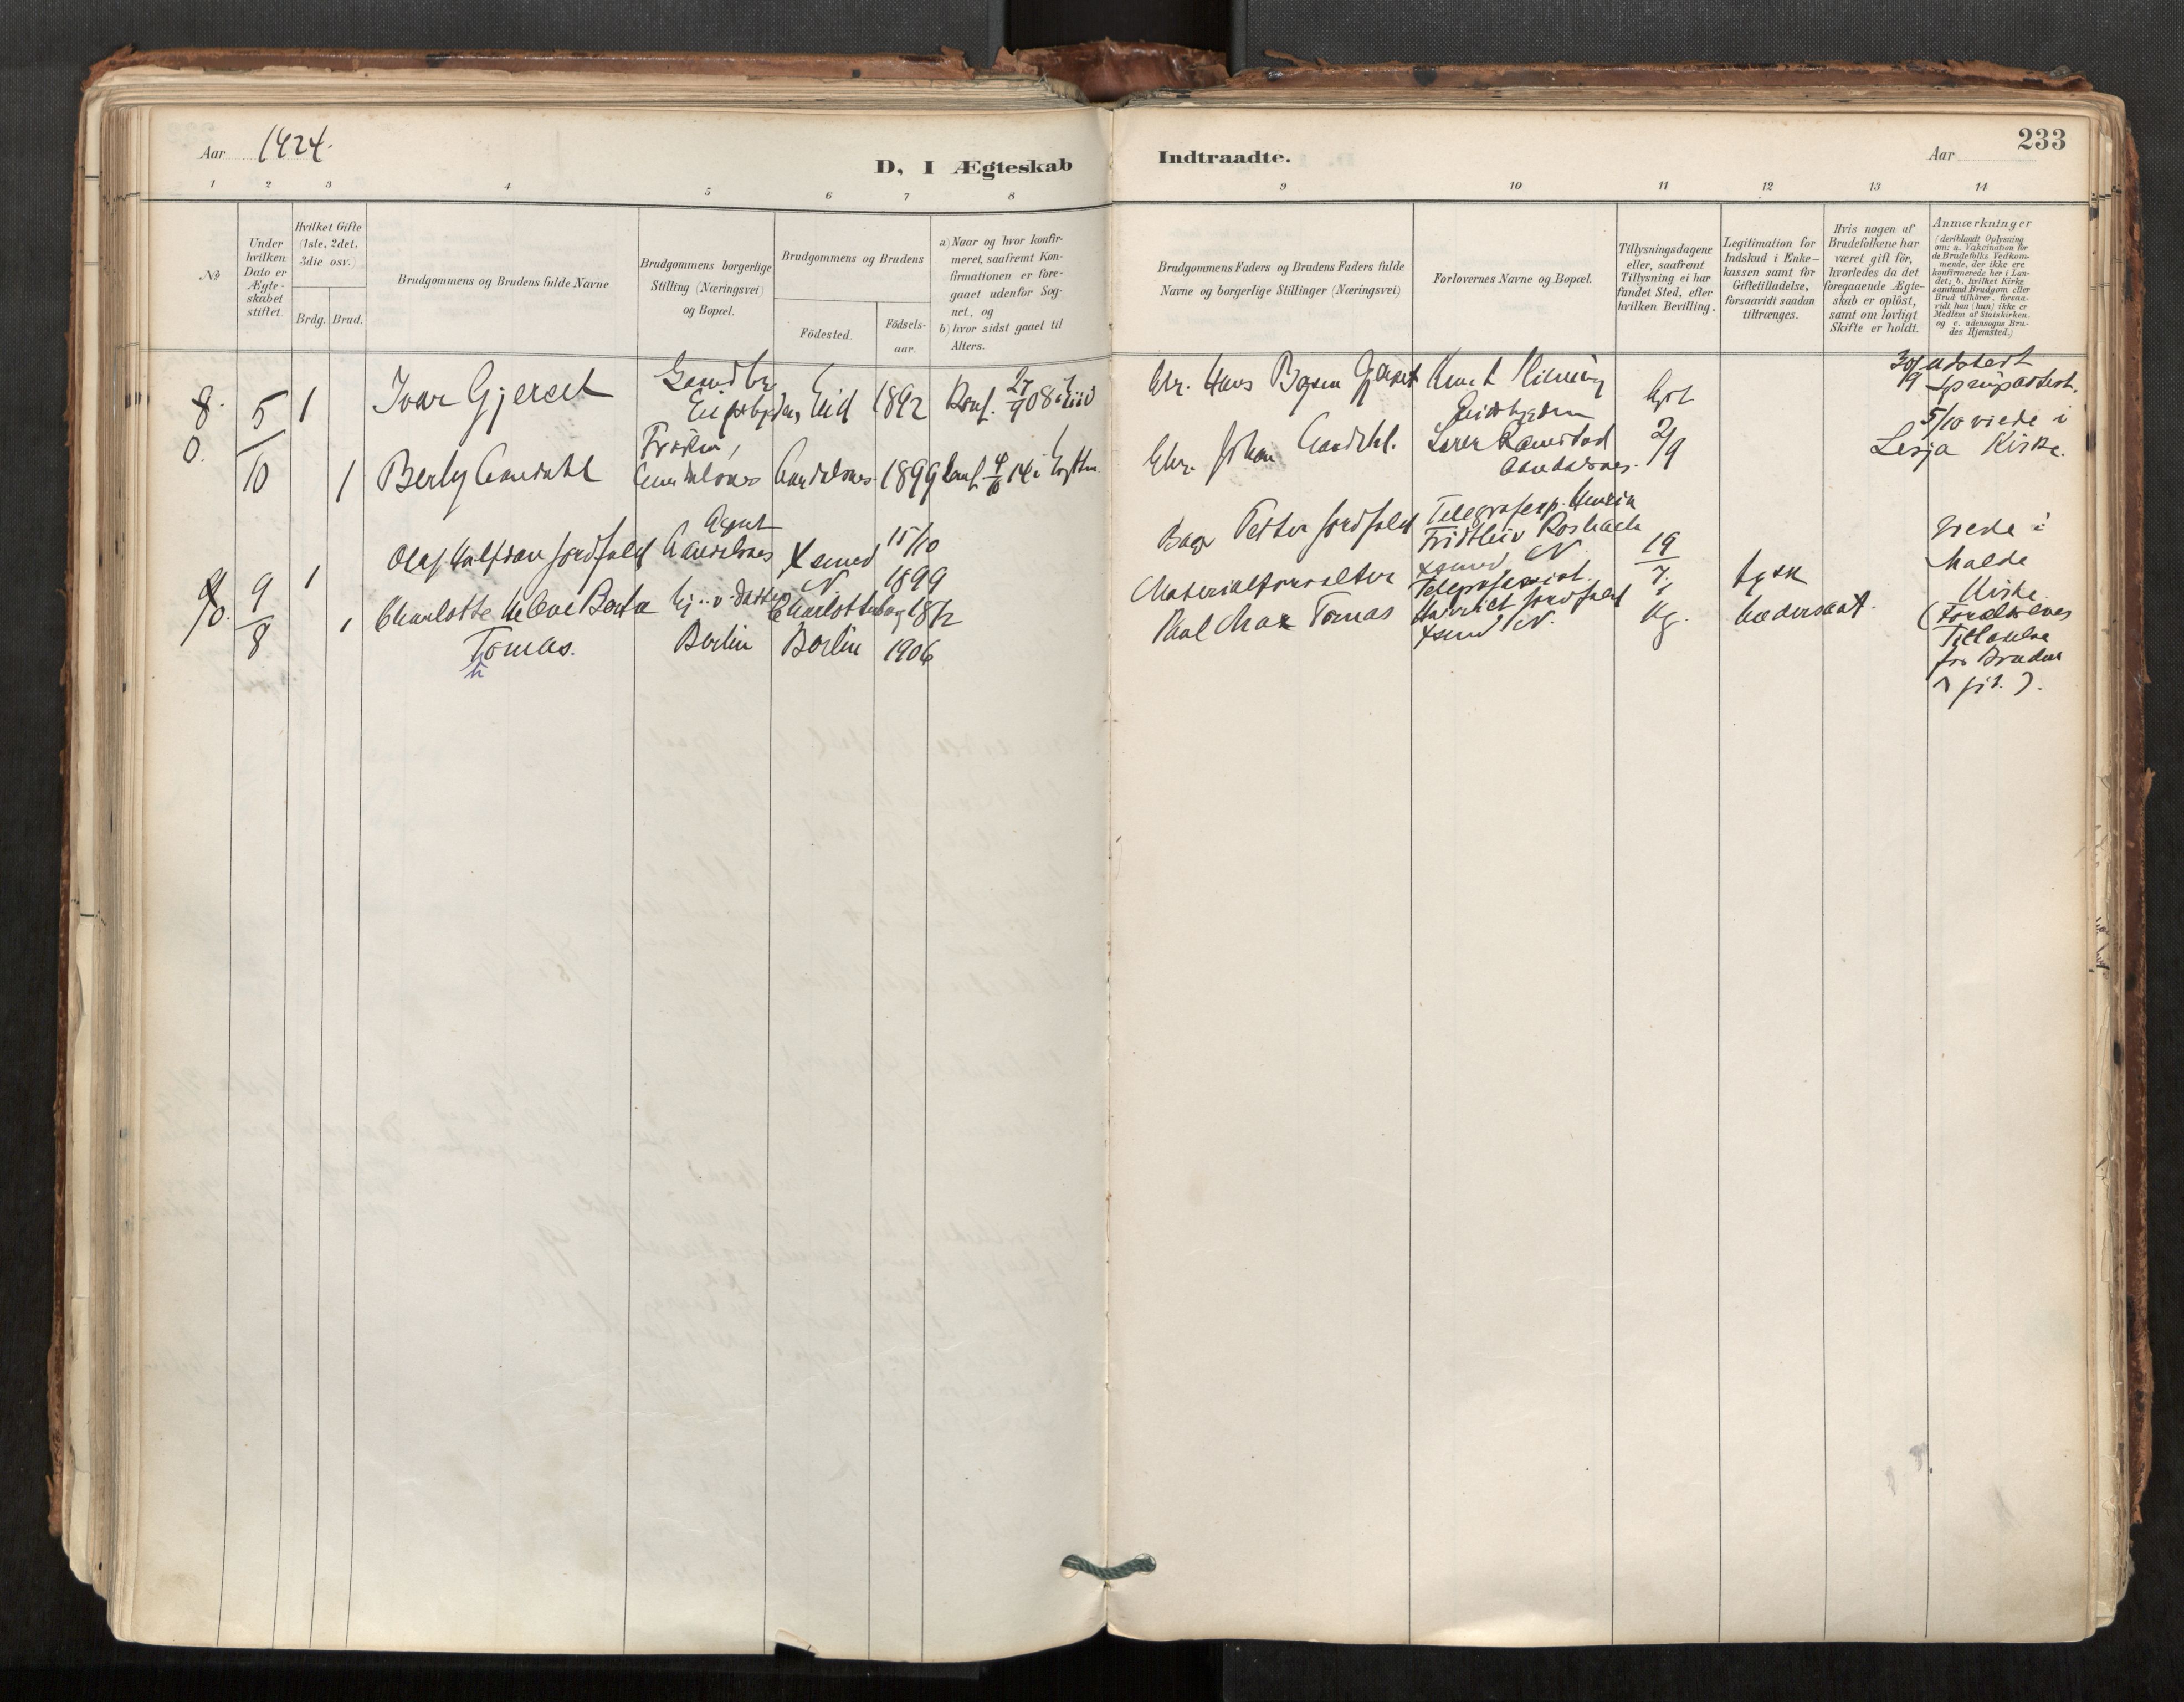 Aar 1924.
D, I Ægteskab
Indtraadte.
Aar
233
1 2 3 4 5 6 7 8 9 10 11 12 13 14
No
Under
hvilken
Dato er
Ægte-
skabet
stiftet.
Hvilket Gifte
(1ste, 2det,
3die osv.)
Brdg. Brud.
Brudgommens og Brudens fulde Navne
Brudgommens borgerlige
Stilling (Næringsvei)
og Bopæl.
Brudgommens og Brudens
Födested.
Födsels-
aar.
a) Naar og hvor konfir-
meret, saafremt Kon-
firmationen er fore-
gaaet udenfor Sog-
net, og
b) hvor sidst gaaet til
Alters.
Brudgommens Faders og Brudens Faders fulde
Navne og borgerlige Stillinger (Næringsvei)
Forlovernes Navne og Bopæl.
Tillysningsdagene
eller, saafremt
Tillysning ei har
fundet Sted, efter
hvilken Bevilling.
Legitimation for
Indskud i Enke-
kassen samt for
Giftetilladelse,
forsaavidt saadan
tiltrænges.
Hvis nogen af
Brudefolkene har
været gift för,
hvorledes da det
foregaaende Ægte-
skab er oplöst,
samt om lovligt
Skifte er holdt.
Anmærkninger
(deriblandt Oplysning
om: a. Vakcination for
de Brudefolks Vedkom-
mende, der ikke ere
konfirmerede her i Lan-
det; b. hvilket Kirke
samfund Brudgom eller
Brud tilhörer, forsaa-
vidt han (hun) ikke er
Medlem af Statskirken,
og c. udensogns Bru-
des Hjemsted.)
8. 5/10 1 Ivar Gjerset
Eid 1892 Konf. 27/9 08 i Eid
Hans
Gjerset
30/9 udstedt
5/10 viede i
Lesja Kirke.
1 Berly Aandahl
Frøken,
Aandalsnes Aandalsnes 1899 Konf. 4/10 14 i
Johan Aandahl.
Lærer Ramstad
Aandalsnes.
2/9
9/8 1 Olaf Halfdan Jordfald
Agent
Aandalsnes
Xsund
N
15/10
1899
Petter Jordfald
Telegrafexp. Henrik
Fridtleiv Rosbach
Xsund N
19/7
Viede i
Molde
Kirke
1 Charlotte Helene Berta
Tomas.
Berlin
Charlottenbg
Berlin
18/2
1906
Materialforvalter
Paul Max Tomas
Jordfald
Xsund N.
Kg.
tysk
(Forældrenes
Tilladelse
for Bruden